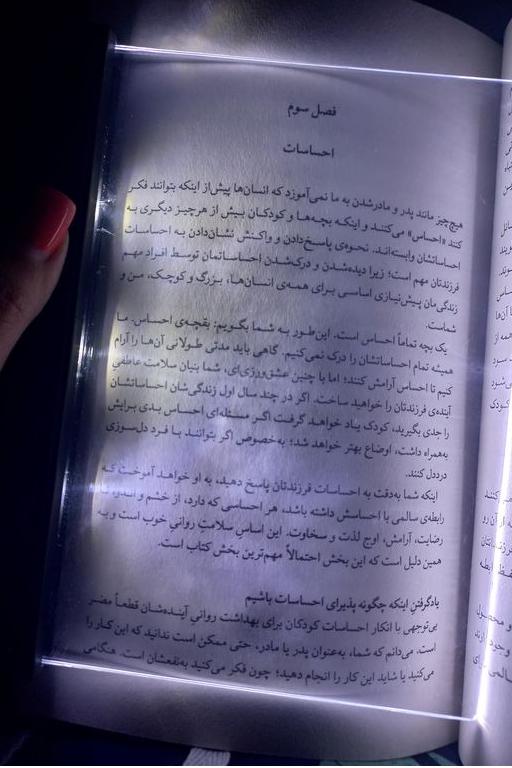 فصل سوم
احساسات
هیچ‌چیز مانند پدر و مادرشدن به ما نمی‌آموزد که انسان‌ها پیش‌از اینکه بتوانند فکر
کنند «احساس» می‌کنند و اینکه بچه‌ها و کودکان بیش از هرچیز دیگری به
احساساتشان وابسته‌اند. نحوه‌ی پاسخ‌دادن و واکنش نشان‌دادن به احساسات
فرزندتان مهم است؛ زیرا دیده‌شدن و درک‌شدن احساساتمان توسط افراد مهم
زندگی‌مان پیش‌نیازی اساسی برای همه‌ی انسان‌ها، بزرگ و کوچک، من و
شماست.
یک بچه تماماً احساس است. این‌طور به شما بگویم: بقچه‌ی احساس. ما
همیشه تمام احساساتشان را درک نمی‌کنیم. گاهی باید مدتی طولانی آن‌ها را آرام
کنیم تا احساس آرامش کنند؛ اما با چنین عشق‌ورزی‌ای، شما بنیان سلامت عاطفی
آینده‌ی فرزندتان را خواهید ساخت. اگر در چند سال اول زندگی‌شان احساساتشان
را جدی بگیرید، کودک یاد خواهد گرفت اگر مسئله‌ای احساس بدی برایش
به‌همراه داشت، اوضاع بهتر خواهد شد؛ به‌خصوص اگر بتوانند با فرد دل‌سوزی
درددل کنند.
اینکه شما به‌دقت به احساسات فرزندتان پاسخ دهید، به او خواهد آموخت که
رابطه‌ی سالمی با احساسش داشته باشد، هر احساسی که دارد، از خشم و اندوه تا
رضایت، آرامش، اوج لذت و سخاوت. این اساسِ سلامتِ روانیِ خوب است و به
همین دلیل است که این بخش احتمالاً مهم‌ترین بخش کتاب است.
یادگرفتنِ اینکه چگونه پذیرای احساسات باشیم
بی‌توجهی یا انکار احساسات کودکان برای بهداشت روانیِ آینده‌شان قطعاً مضر
است. می‌دانم که شما، به‌عنوان پدر یا مادر، حتی ممکن است ندانید که این کار را
می‌کنید یا شاید این کار را انجام دهید؛ چون فکر می‌کنید به‌نفعشان است. هنگامی